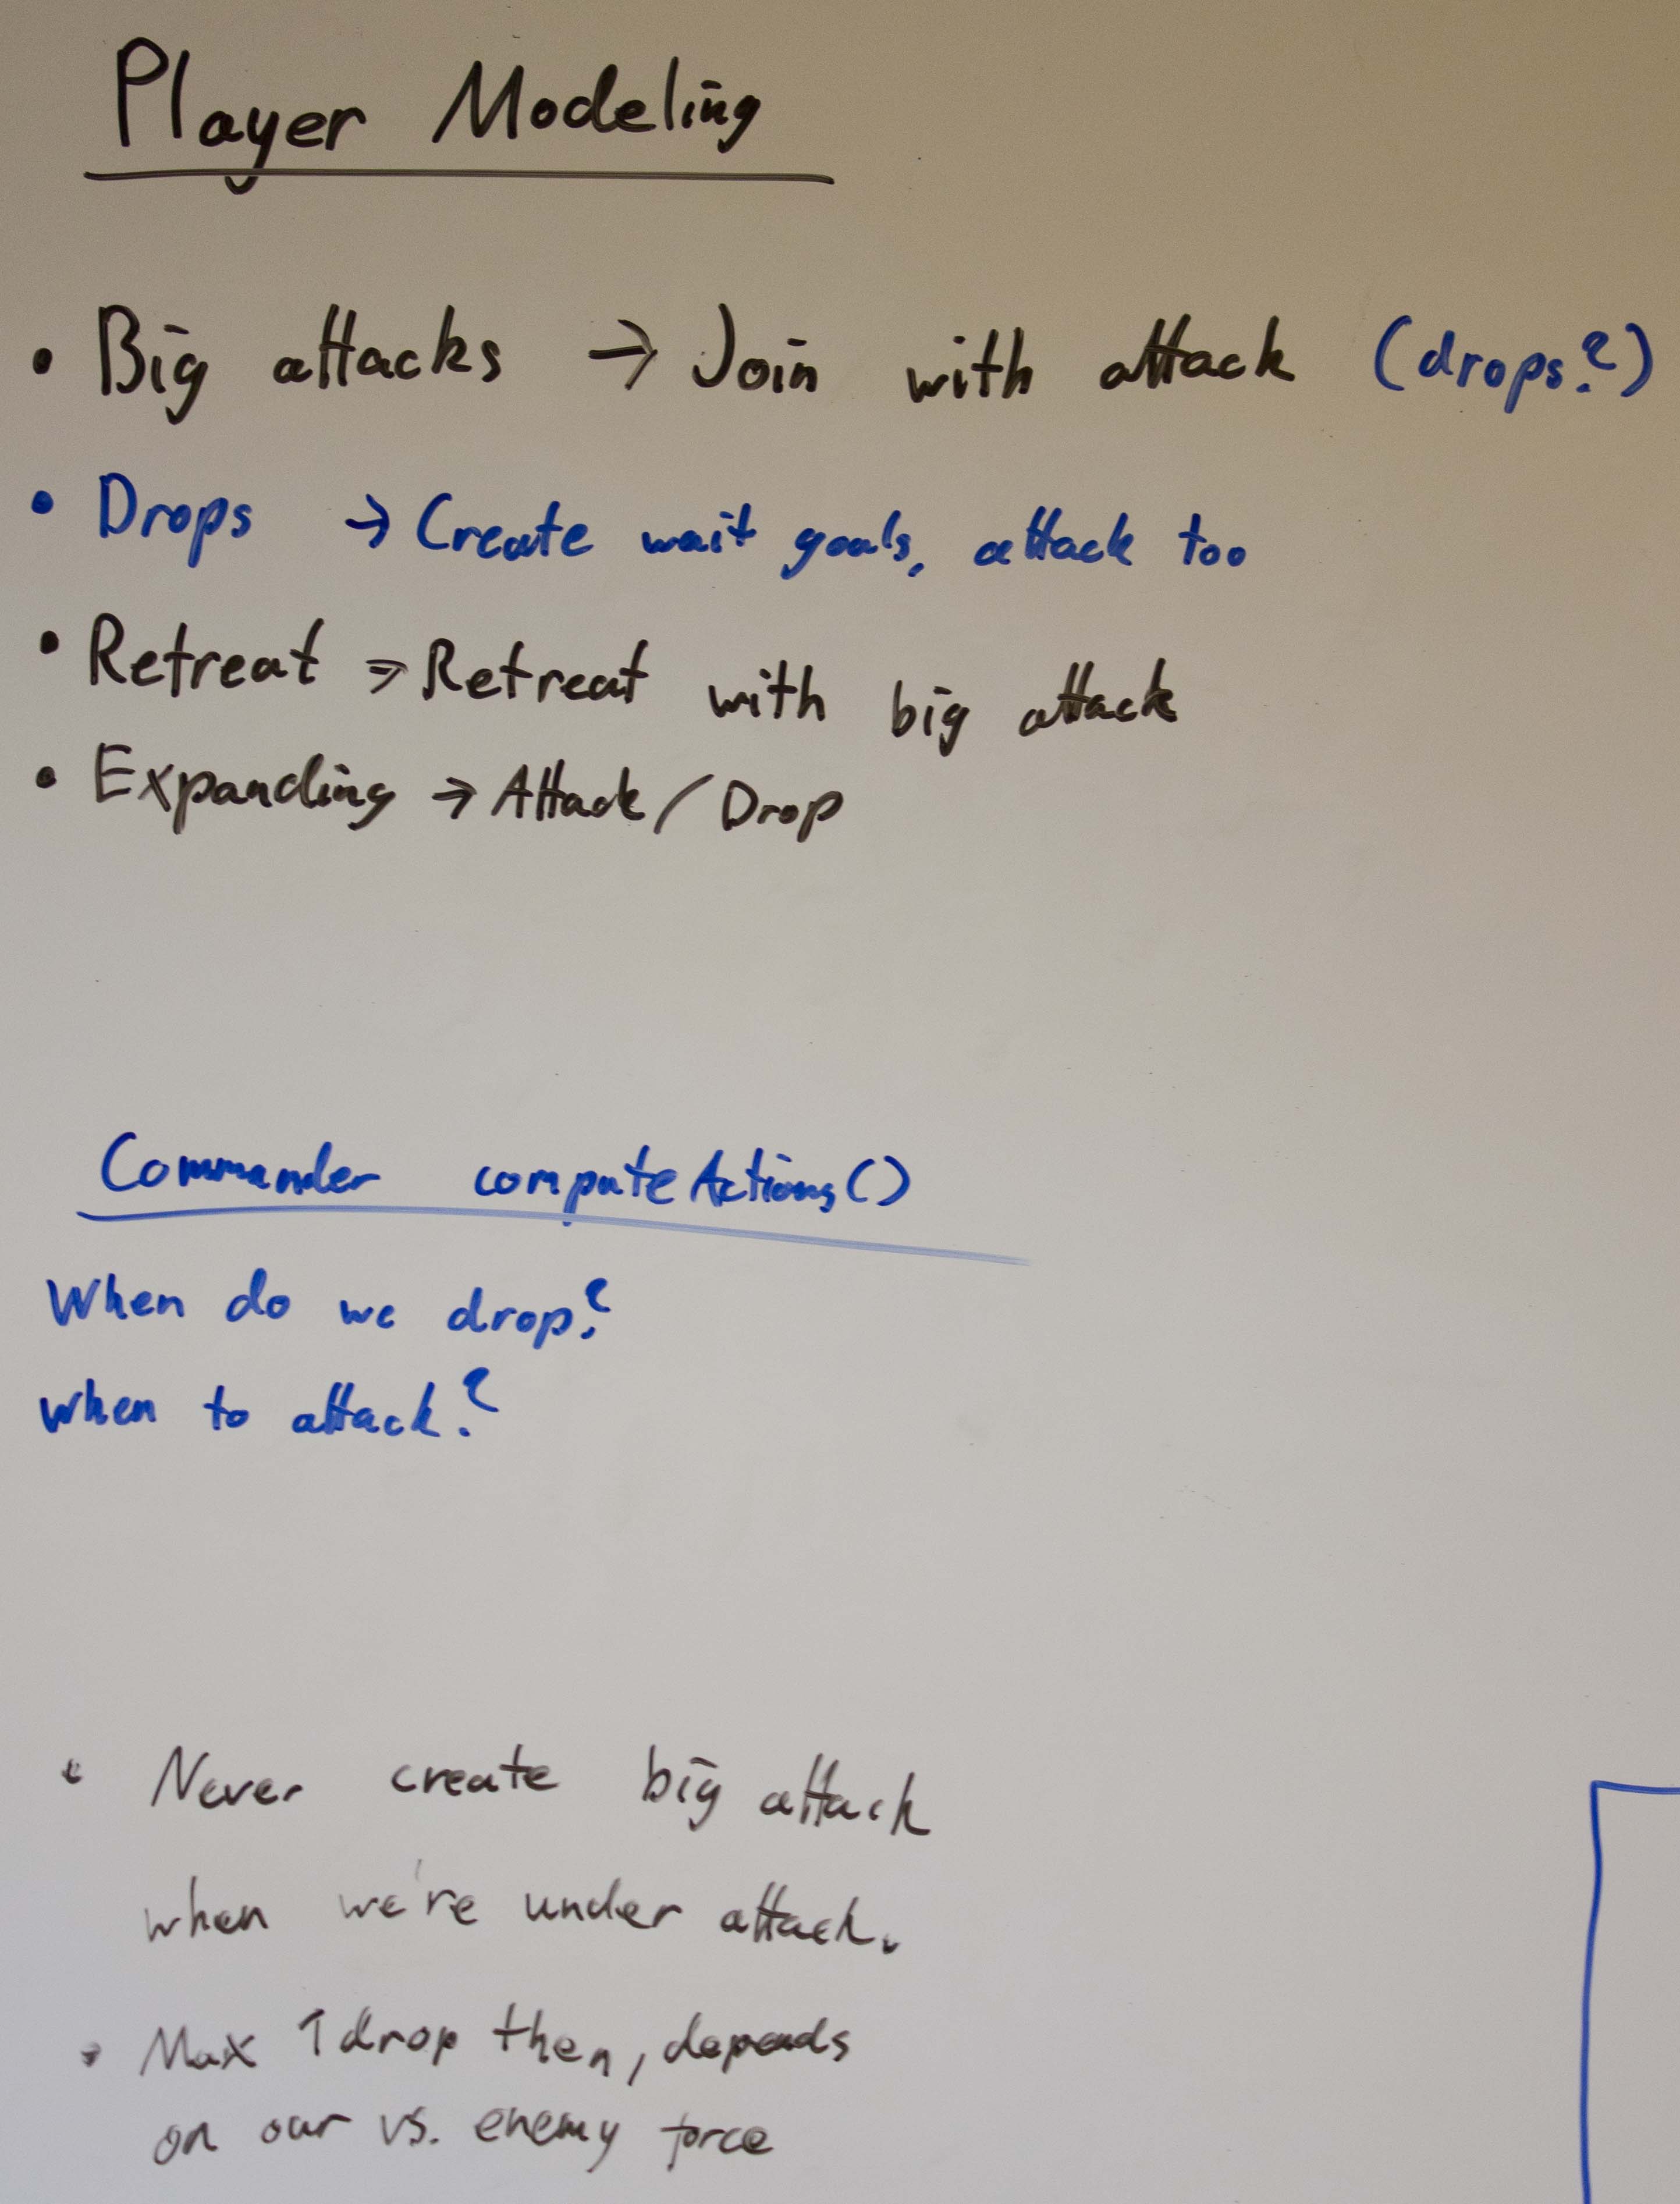 Player Modeling
• Big attacks → Join with attack (drops?)
• Drops → Create wait goals, attack too
• Retreat ⇒ Retreat with big attack
• Expanding → Attack / Drop
Commander computeActions()
When do we drop?
when to attack?
• Never create big attack
when we're under attack.
• Max 1 drop then, depends
on our vs. enemy force